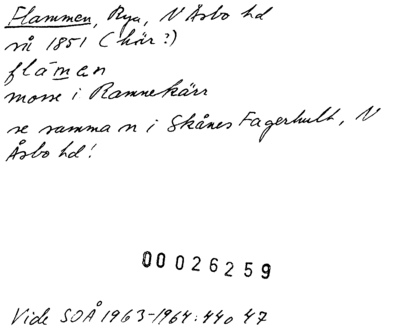 Flammen, Rya, N Åsbo hd
så 1851 (här?)
flámen
mosse i Ramnekärr
se samma n i Skånes Fagerhult, N
Åsbo hd!
00026259
Vide SOÅ 1963-1964: 44 o 47